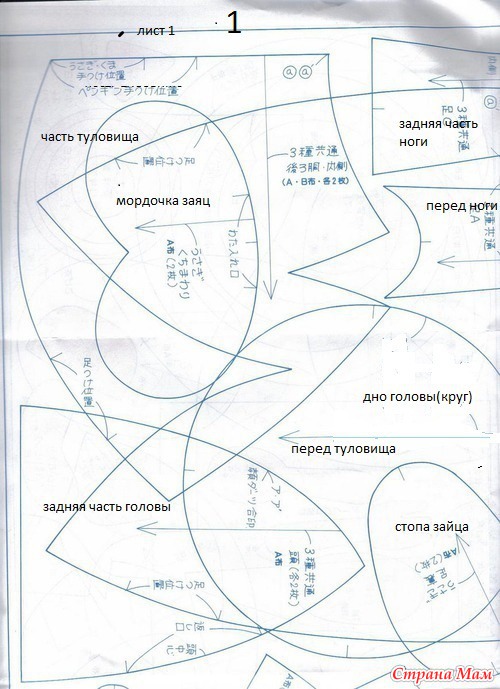 лист 1
1
うさぎ・くま
手つけ位置
ペンギン手つけ位置
часть туловища
足つけ位置
мордочка заяц
わた入れ口
うさぎ
くちまわり
A布(2枚)
ⓐⓐ
3種共通
後ろ胴・内側
(A・B布・各2枚)
задняя часть
ноги
3種共通
перед ноги
3種共通
足つけ位置
дно головы(круг)
перед туловища
задняя часть головы
3種共通
頭(各2枚)
A布
стопа зайца
足つけ位置
返し口
頭中心
Страна Мам